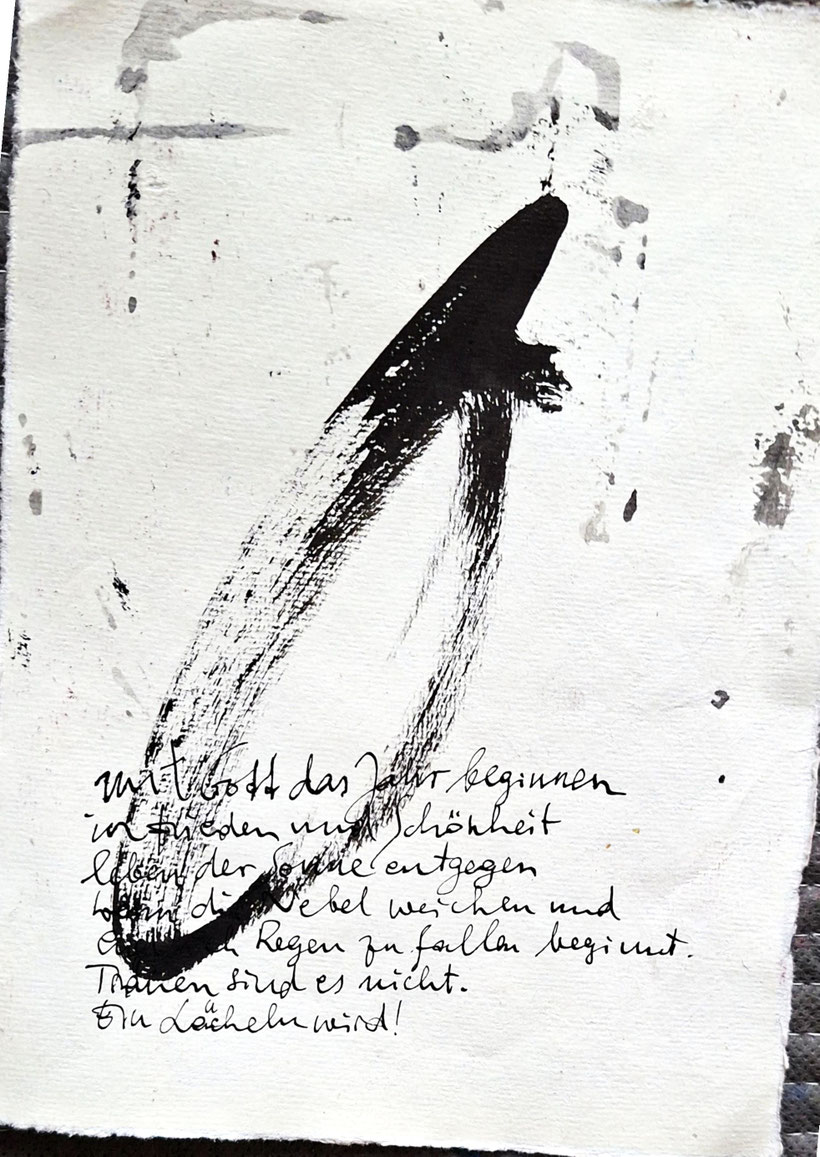 mit Gott das Jahr beginnen
in Frieden und Schönheit
leben der Sonne entgegen
wenn die Nebel weichen und
Regen zu fallen beginnt.
Tränen sind es nicht.
Ein Lächeln wird!